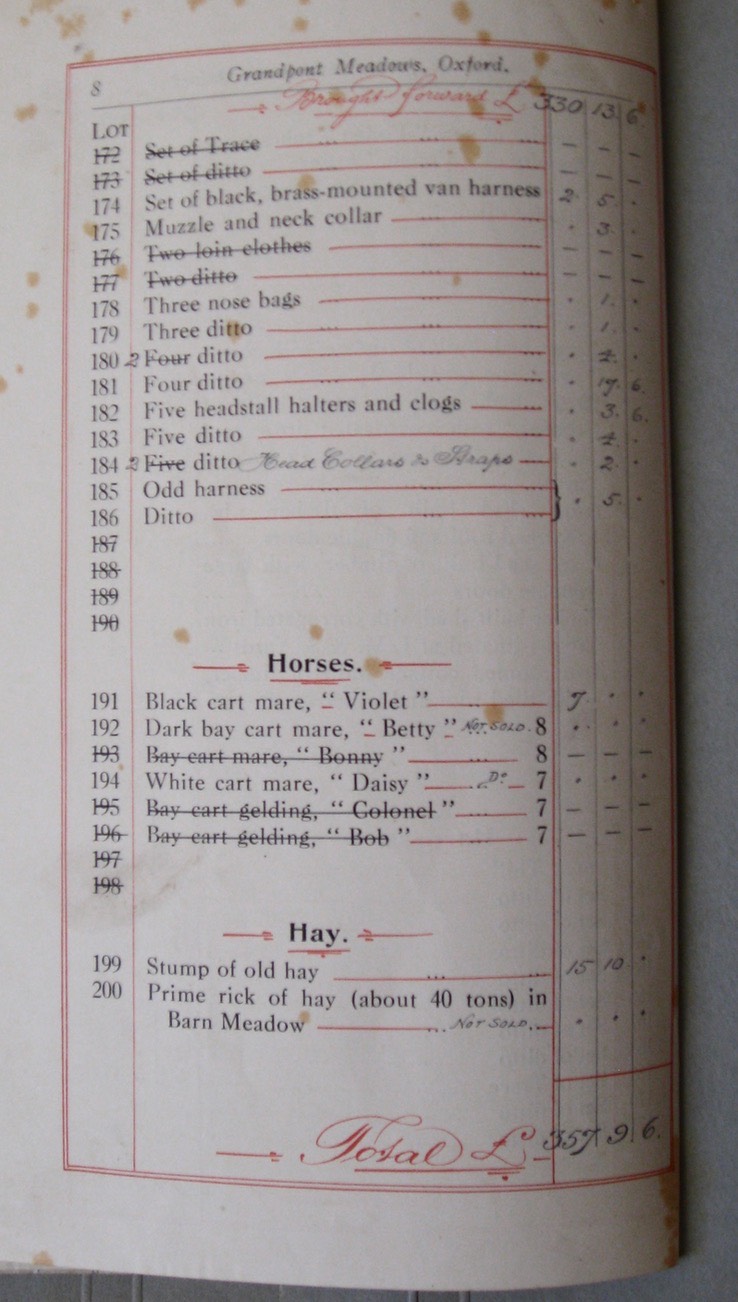 8 Grandpont Meadows, Oxford.
Brought forward £ 330 13. 6.
LOT
172 Set of Trace — — —
173 Set of ditto — — —
174 Set of black, brass-mounted van harness 2. 5. .
175 Muzzle and neck collar . 3. .
176 Two loin clothes — — —
177 Two ditto — — —
178 Three nose bags . 1. .
179 Three ditto . 1. .
180 2 Four ditto . 4. .
181 Four ditto . 17. 6.
182 Five headstall halters and clogs . 3. 6.
183 Five ditto . 4. .
184 2 Five ditto Head Collars & Straps . 2. .
185 Odd harness } . 5. .
186 Ditto
187
188
189
190
Horses.
191 Black cart mare, “ Violet ” 7. . .
192 Dark bay cart mare, “ Betty ” NOT SOLD. 8 . . .
193 Bay cart mare, “ Bonny ” 8 — — —
194 White cart mare, “ Daisy ” Do 7 . . .
195 Bay cart gelding, “ Colonel ” 7 — — —
196 Bay cart gelding, “ Bob ” 7 — — —
197
198
Hay.
199 Stump of old hay 15 10 .
200 Prime rick of hay (about 40 tons) in
Barn Meadow NOT SOLD. . . .
Total £ 357. 9. 6.